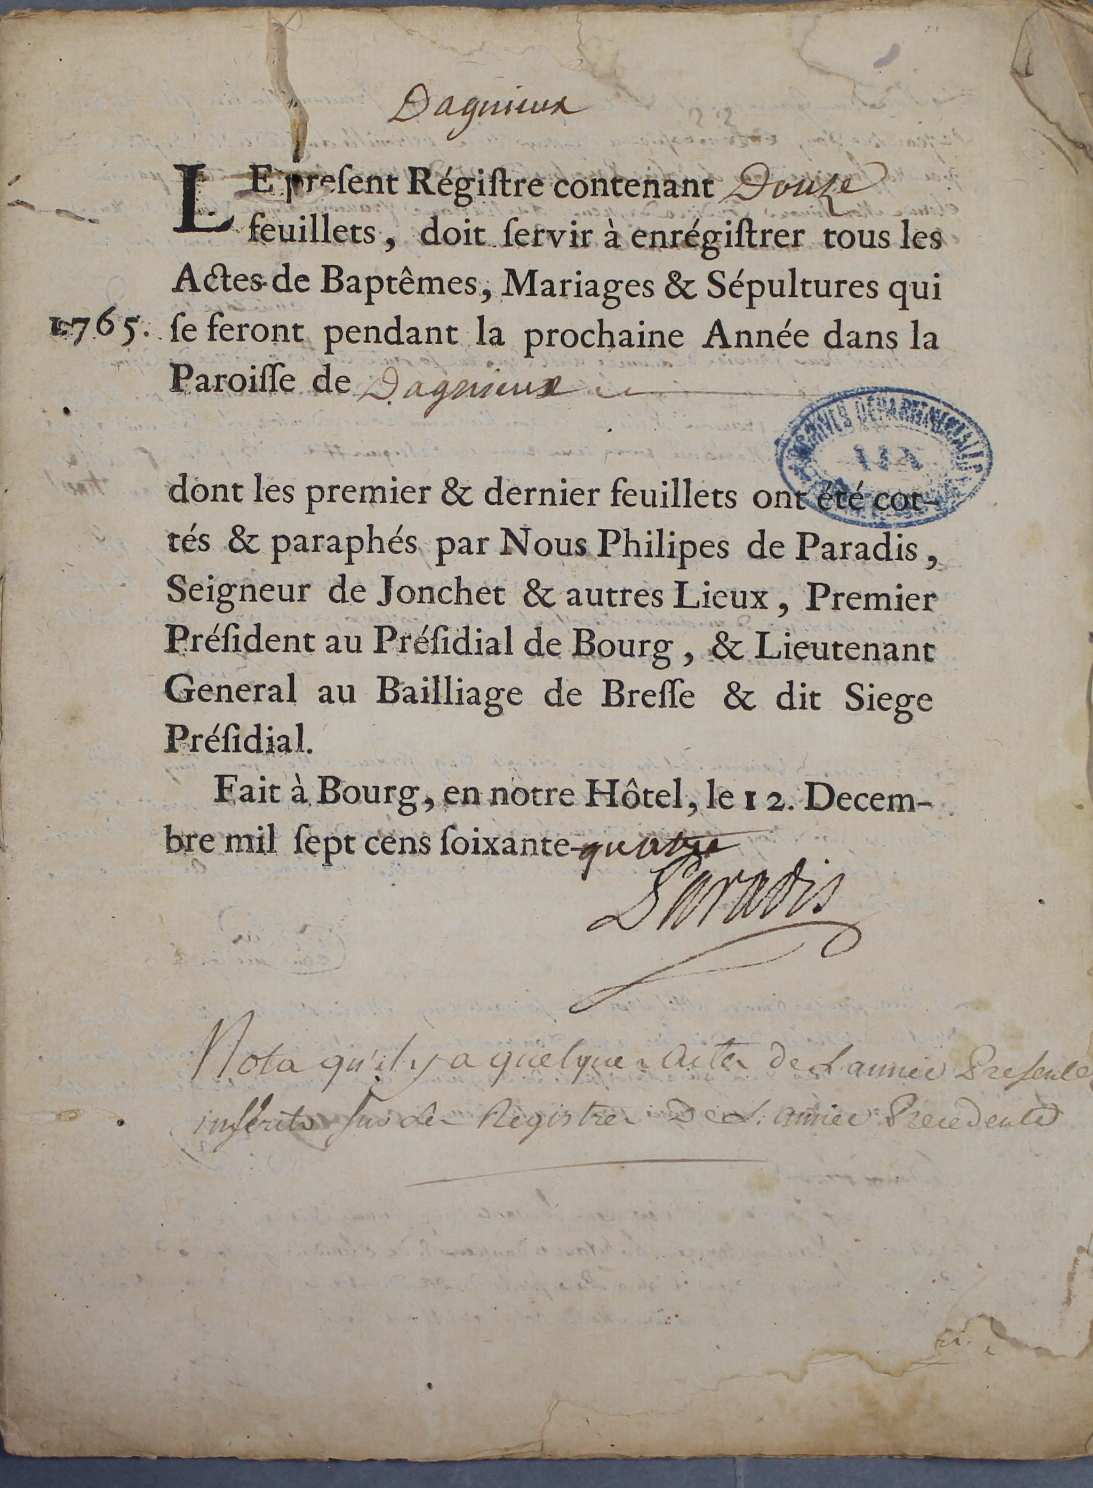 Dagnieux
LE preſent Régiſtre contenant Douze
feuillets, doit ſervir à enrégiſtrer tous les
Actes de Baptêmes, Mariages & Sépultures qui
1765. ſe feront pendant la prochaine Année dans la
Paroiſſe de Dagnieux
ARCHIVES DÉPARTEMENTALES
AIN
dont les premier & dernier feuillets ont été cot-
tés & paraphés par Nous Philipes de Paradis,
Seigneur de Jonchet & autres Lieux, Premier
Préſident au Préſidial de Bourg, & Lieutenant
General au Bailliage de Breſſe & dit Siege
Préſidial.
Fait à Bourg, en notre Hôtel, le 12. Decem-
bre mil ſept cens ſoixante-quatre
Paradis
Nota qu'il y a quelques actes de L'année Preſente
inſerits ſur les Registres De L'année Precedente